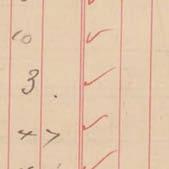 10 ✓
3. ✓
47 ✓